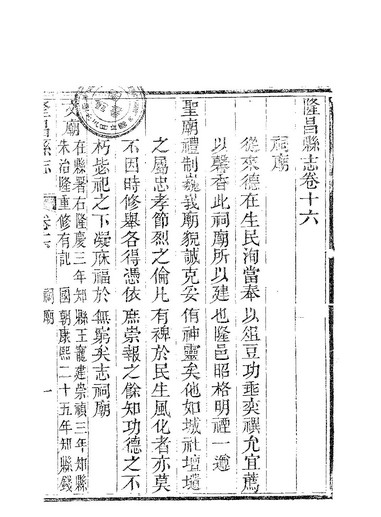 隆昌縣志卷十六
祠廟
從來德在生民洵當奉以俎豆功垂奕禩允宜薦
以馨香此祠廟所以建也隆邑昭格明禋一遵
聖廟禮制巍我廟貌誠克妥侑神靈矣他如城社壇壝
之屬忠孝節烈之倫凡有裨於民生風化者亦莫
不因時修舉各得憑依庶崇報之餘知功德之不
朽毖祀之下凝庥福於無窮矣志祠廟
文廟
在縣署右隆慶三年知縣王寵建崇禎三年知縣
朱治隆重修有記 國朝康熙二十五年知縣錢
隆昌縣志 卷十六 祠廟 一